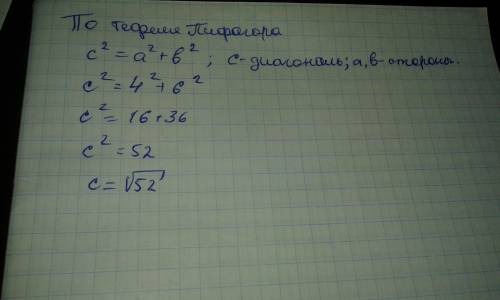 По теореме Пифагора
c² = a² + b² ; c-диагональ; a, b-стороны.
c² = 4² + 6²
c² = 16 + 36
c² = 52
c = √52